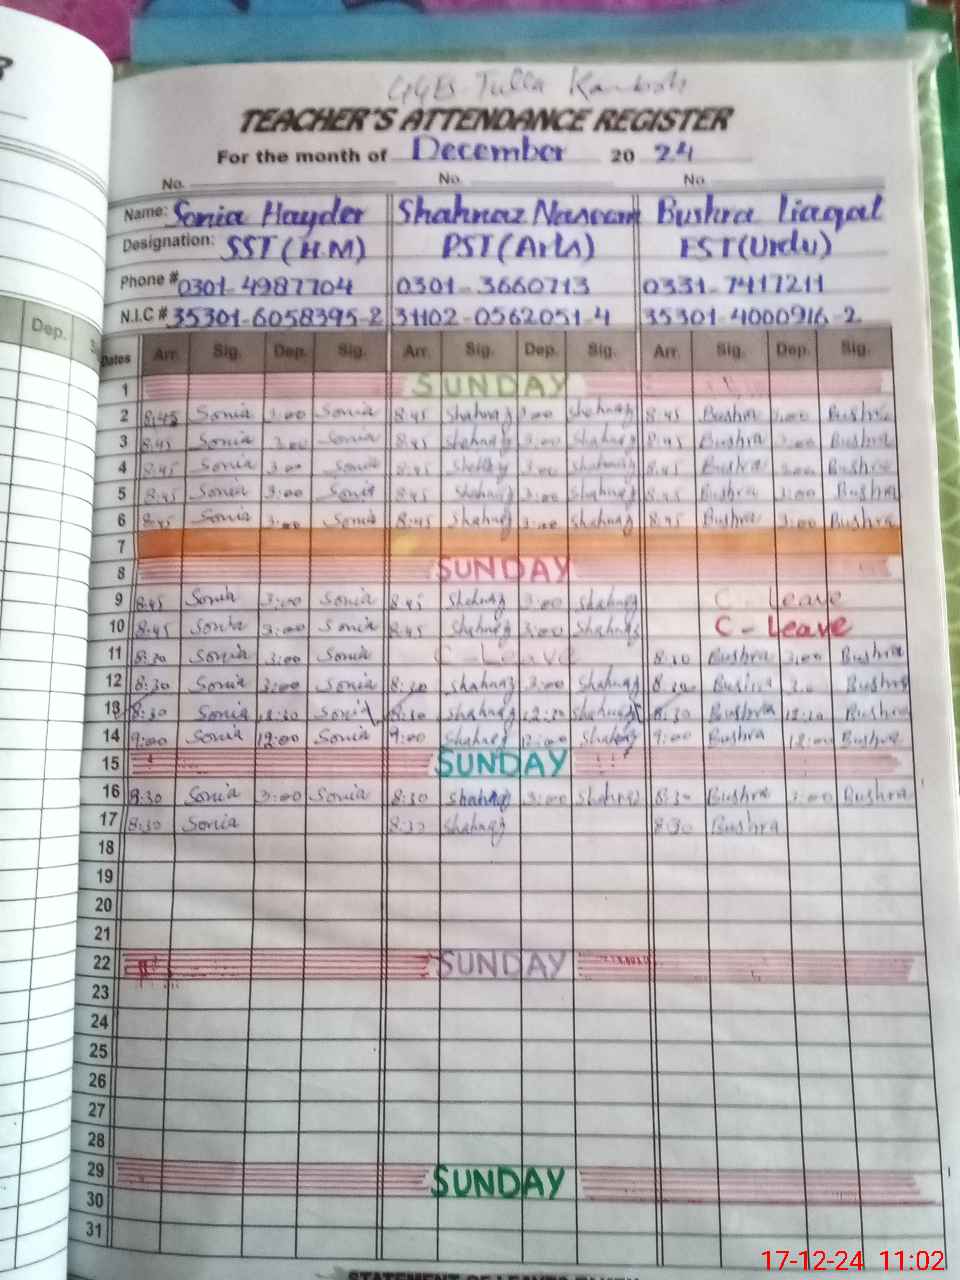 TEACHER'S ATTENDANCE REGISTER
For the month of December 20 24
No. No. No.
Name: Sonia Hayder Shahnaz Naseem Bushra Liaqat
Designation: SST (H.M) PST (Arts) EST (Urdu)
Phone # 0301-4987704 0301-3660713 0331-7417211
N.I.C # 35301-6058395-2 31102-0562051-4 35301-4000916-2
Dates Arr. Sig. Dep. Sig. Arr. Sig. Dep. Sig. Arr. Sig. Dep. Sig.
1 SUNDAY
2 8:45 Sonia 3:00 Sonia 8:45 Shahnaz 3:00 Shahnaz 8:45 Bushra 3:00 Bushra
3 8:45 Sonia 3:00 Sonia 8:45 Shahnaz 3:00 Shahnaz 8:45 Bushra 3:00 Bushra
4 8:45 Sonia 3:00 Sonia 8:45 Shahnaz 3:00 Shahnaz 8:45 Bushra 3:00 Bushra
5 8:45 Sonia 3:00 Sonia 8:45 Shahnaz 3:00 Shahnaz 8:45 Bushra 3:00 Bushra
6 8:45 Sonia 3:00 Sonia 8:45 Shahnaz 3:00 Shahnaz 8:45 Bushra 3:00 Bushra
7
8 SUNDAY
9 8:45 Sonia 3:00 Sonia 8:45 Shahnaz 3:00 Shahnaz C - Leave
10 8:45 Sonia 3:00 Sonia 8:45 Shahnaz 3:00 Shahnaz C - Leave
11 8:30 Sonia 3:00 Sonia C - Leave 8:30 Bushra 3:00 Bushra
12 8:30 Sonia 3:00 Sonia 8:30 Shahnaz 3:00 Shahnaz 8:30 Bushra 3:00 Bushra
13 8:30 Sonia 12:30 Sonia 8:30 Shahnaz 12:30 Shahnaz 8:30 Bushra 12:30 Bushra
14 9:00 Sonia 12:00 Sonia 9:00 Shahnaz 12:00 Shahnaz 9:00 Bushra 12:00 Bushra
15 SUNDAY
16 8:30 Sonia 3:00 Sonia 8:30 Shahnaz 3:00 Shahnaz 8:30 Bushra 3:00 Bushra
17 8:30 Sonia 8:30 Shahnaz 8:30 Bushra
18
19
20
21
22 SUNDAY
23
24
25
26
27
28
29 SUNDAY
30
31
Dep.
17-12-24 11:02